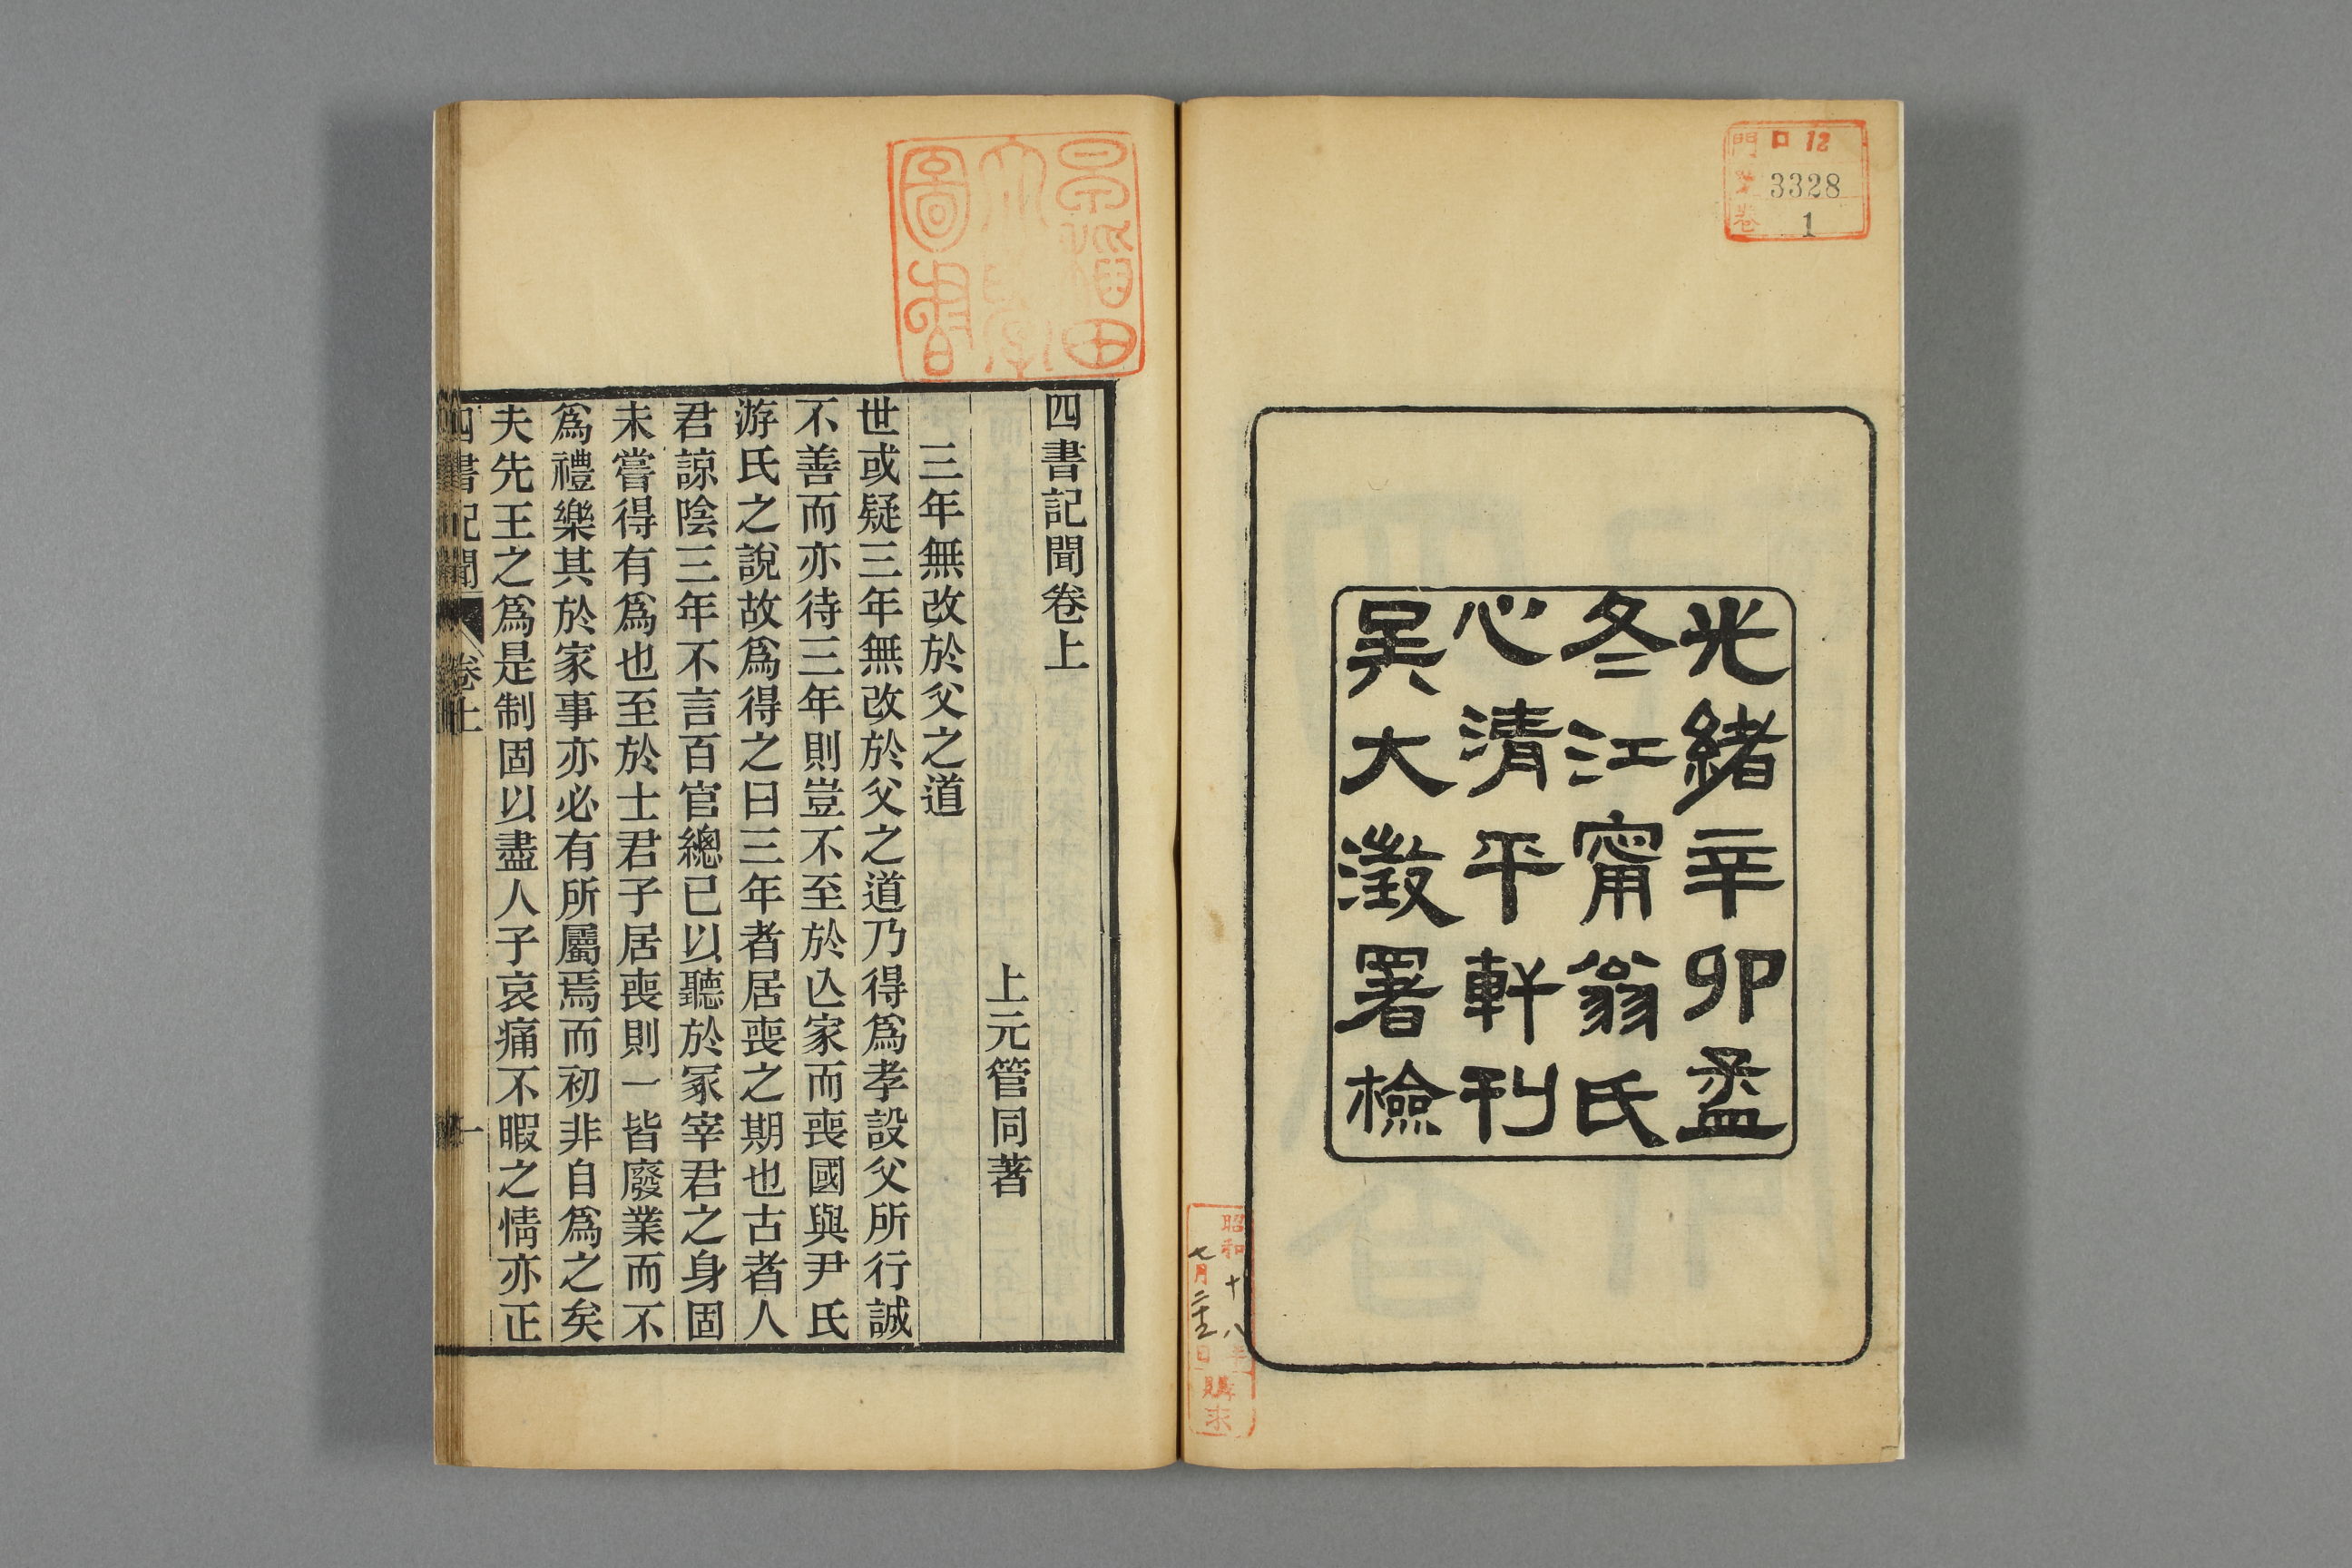 門 口 12
3328
卷 1
光緒辛卯孟
冬江甯翁氏
心清平軒刊
吳大澂署檢
昭和十八年
七月二十五日
購求
早稲田
大學
圖書
四書記聞卷上
上元管同著
三年無改於父之道
世或疑三年無改於父之道乃得爲孝設父所行誠
不善而亦待三年則豈不至於亾家而喪國與尹氏
游氏之說故爲得之曰三年者居喪之期也古者人
君諒陰三年不言百官總已以聽於冢宰君之身固
未嘗得有爲也至於士君子居喪則一皆廢業而不
爲禮樂其於家事亦必有所屬焉而初非自爲之矣
夫先王之爲是制固以盡人子哀痛不暇之情亦正
四書記聞 卷上 一